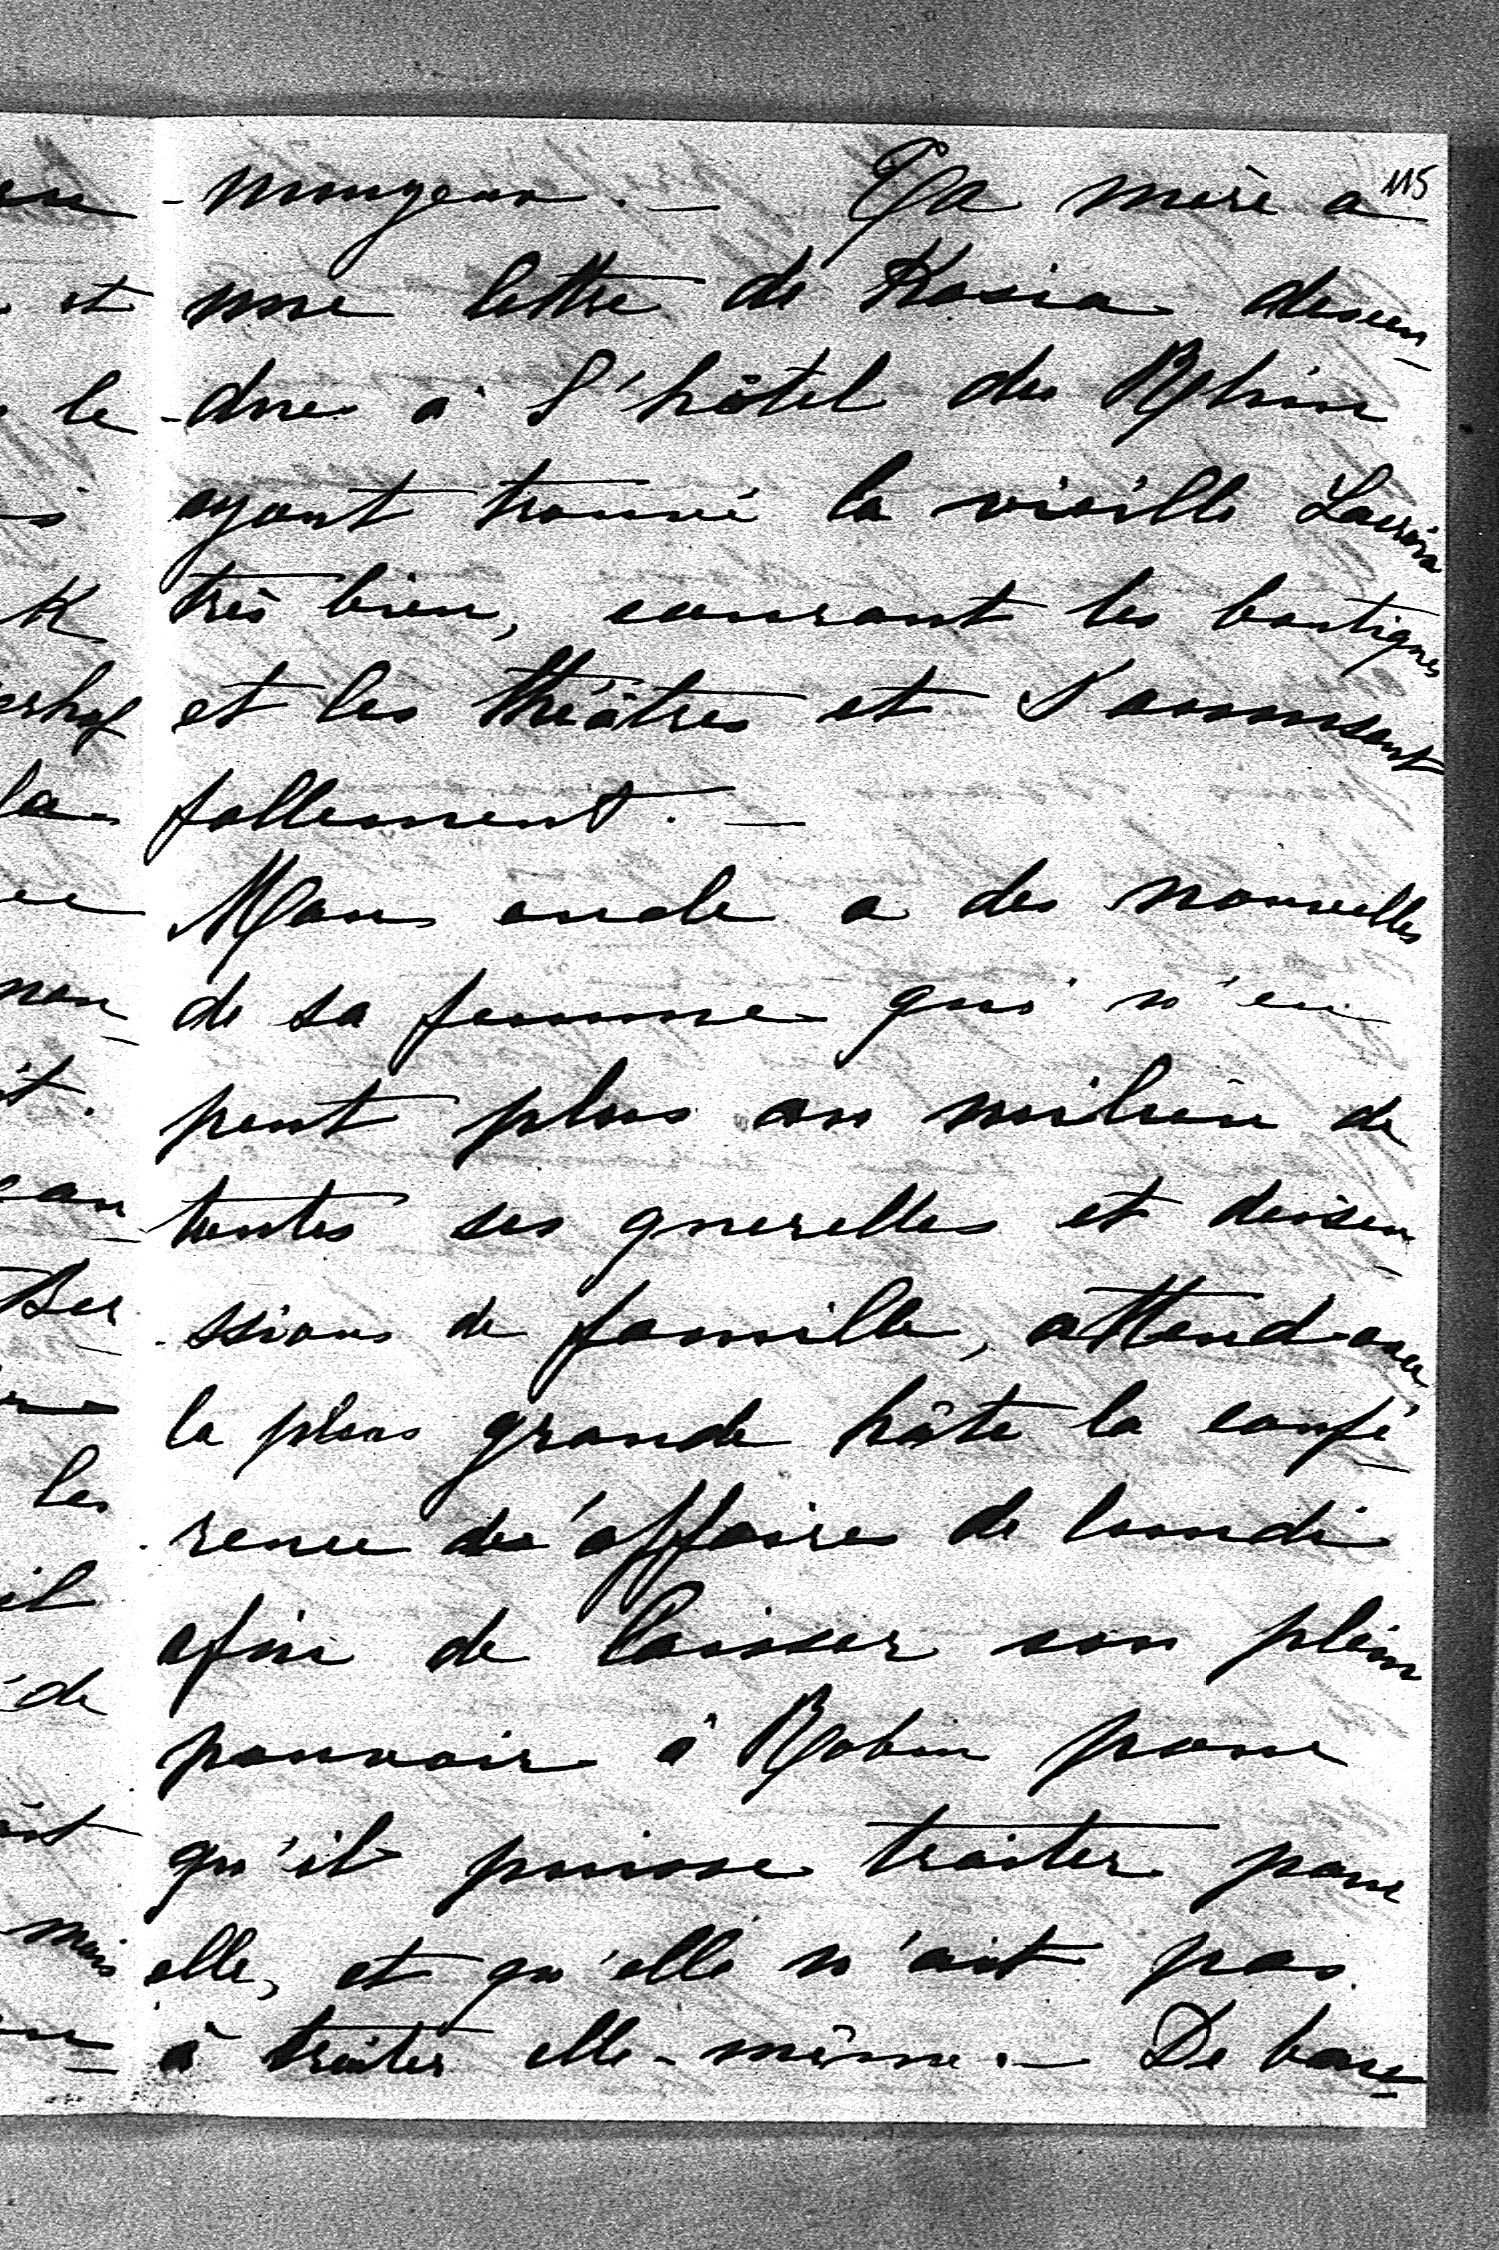 115
- mongeon. — Ta mère a
une lettre de Kasia descen-
-due à l'hôtel du Rhin
ayant trouvé la vieille Lacroix
très bien, courant les boutiques
et les théâtres et s'amusent
follement. —
Mon oncle a des nouvelles
de sa femme qui n'en
peut plus au milieu de
toutes ses querelles et dissen-
-ssions de famille, attend avec
la plus grande hâte la confé-
-rence des affaires de lundi
afin de laisser son plein
pouvoir à Robin pour
qu'il puisse traiter pour
elle, et qu'elle n'ait pas
à traiter elle-même. — De bon-